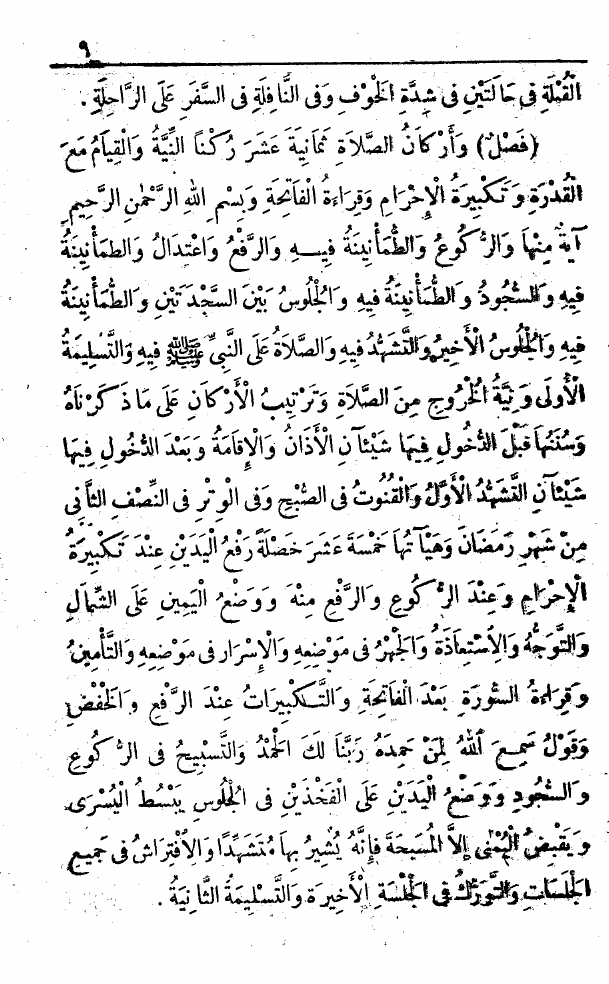 ٩
الْقِبْلَةِ فِى حَالَتَيْنِ فِى شِدَّةِ الْخَوْفِ وَفِى النَّافِلَةِ فِى السَّفَرِ عَلَى الرَّاحِلَةِ .
(فَصْلٌ) وَأَرْكَانُ الصَّلَاةِ ثَمَانِيَةَ عَشَرَ رُكْنًا النِّيَّةُ وَالْقِيَامُ مَعَ
الْقُدْرَةِ وَتَكْبِيرَةُ الْإِحْرَامِ وَقِرَاءَةُ الْفَاتِحَةِ وَبِسْمِ اللهِ الرَّحْمٰنِ الرَّحِيمِ
آيَةٌ مِنْهَا وَالرُّكُوعُ وَالطُّمَأْنِينَةُ فِيهِ وَالرَّفْعُ وَاعْتِدَالُ وَالطمَأْنِينَةُ
فِيهِ وَالسُّجُودُ وَالطُّمَأْنِينَةُ فِيهِ وَالْجُلُوسُ بَيْنَ السَّجْدَتَيْنِ وَالطُّمَأْنِينَةُ
فِيهِ وَالْجُلُوسُ الْأَخِيرُ وَالتَّشَهُّدُ فِيهِ وَالصَّلَاةُ عَلَى النَّبِيِّ ﷺ فِيهِ وَالتَّسْلِيمَةُ
الْأُولَى وَنِيَّةُ الْخُرُوجِ مِنَ الصَّلَاةِ وَتَرْتِيبُ الْأَرْكَانِ عَلَى مَا ذَكَرْنَاهُ
وَسُنَنُهَا قَبْلَ الدُّخُولِ فِيهَا شَيْئَآنِ الْأَذَانُ وَالْإِقَامَةُ وَبَعْدَ الدُّخُولِ فِيهَا
شَيْئَآنِ التَّشَهُّدُ الْأَوَّلُ وَالْقُنُوتُ فِى الصُّبْحِ وَفِى الْوِتْرِ فِى النِّصْفِ الثَّانِى
مِنْ شَهْرِ رَمَضَانَ وَهَيْآتُهَا خَمْسَةَ عَشَرَ خَصْلَةً رَفْعُ الْيَدَيْنِ عِنْدَ تَكْبِيرَةِ
الْإِحْرَامِ وَعِنْدَ الرُّكُوعِ وَالرَّفْعِ مِنْهُ وَوَضْعُ الْيَمِينِ عَلَى الشِّمَالِ
وَالتَّوَجُّهُ وَالْاِسْتِعَاذَةُ وَالْجَهْرُ فِى مَوْضِعِهِ وَالْإِسْرَارُ فِى مَوْضِعِهِ وَالتَّأْمِينُ
وَقِرَاءَةُ السُّورَةِ بَعْدَ الْفَاتِحَةِ وَالتَّكْبِيرَاتُ عِنْدَ الرَّفْعِ وَالْخَفْضِ
وَقَوْلُ سَمِعَ اللهُ لِمَنْ حَمِدَهُ رَبَّنَا لَكَ الْحَمْدُ وَالتَّسْبِيحُ فِى الرُّكُوعِ
وَالسُّجُودِ وَوَضْعُ الْيَدَيْنِ عَلَى الْفَخْذَيْنِ فِى الْجُلُوسِ يَبْسُطُ الْيُسْرَى
وَيَقْبِضُ الْيُمْنَى إِلاَّ الْمُسَبِّحَةَ فَإِنَّهُ يُشِيرُ بِهَا مُتَشَهِّدًا وَالْاِفْتِرَاشُ فِى جَمِيعِ
الْجَلَسَاتِ وَالتَّوَرُّكُ فِى الْجَلْسَةِ الْأَخِيرَةِ وَالتَّسْلِيمَةُ الثَّانِيَةُ .